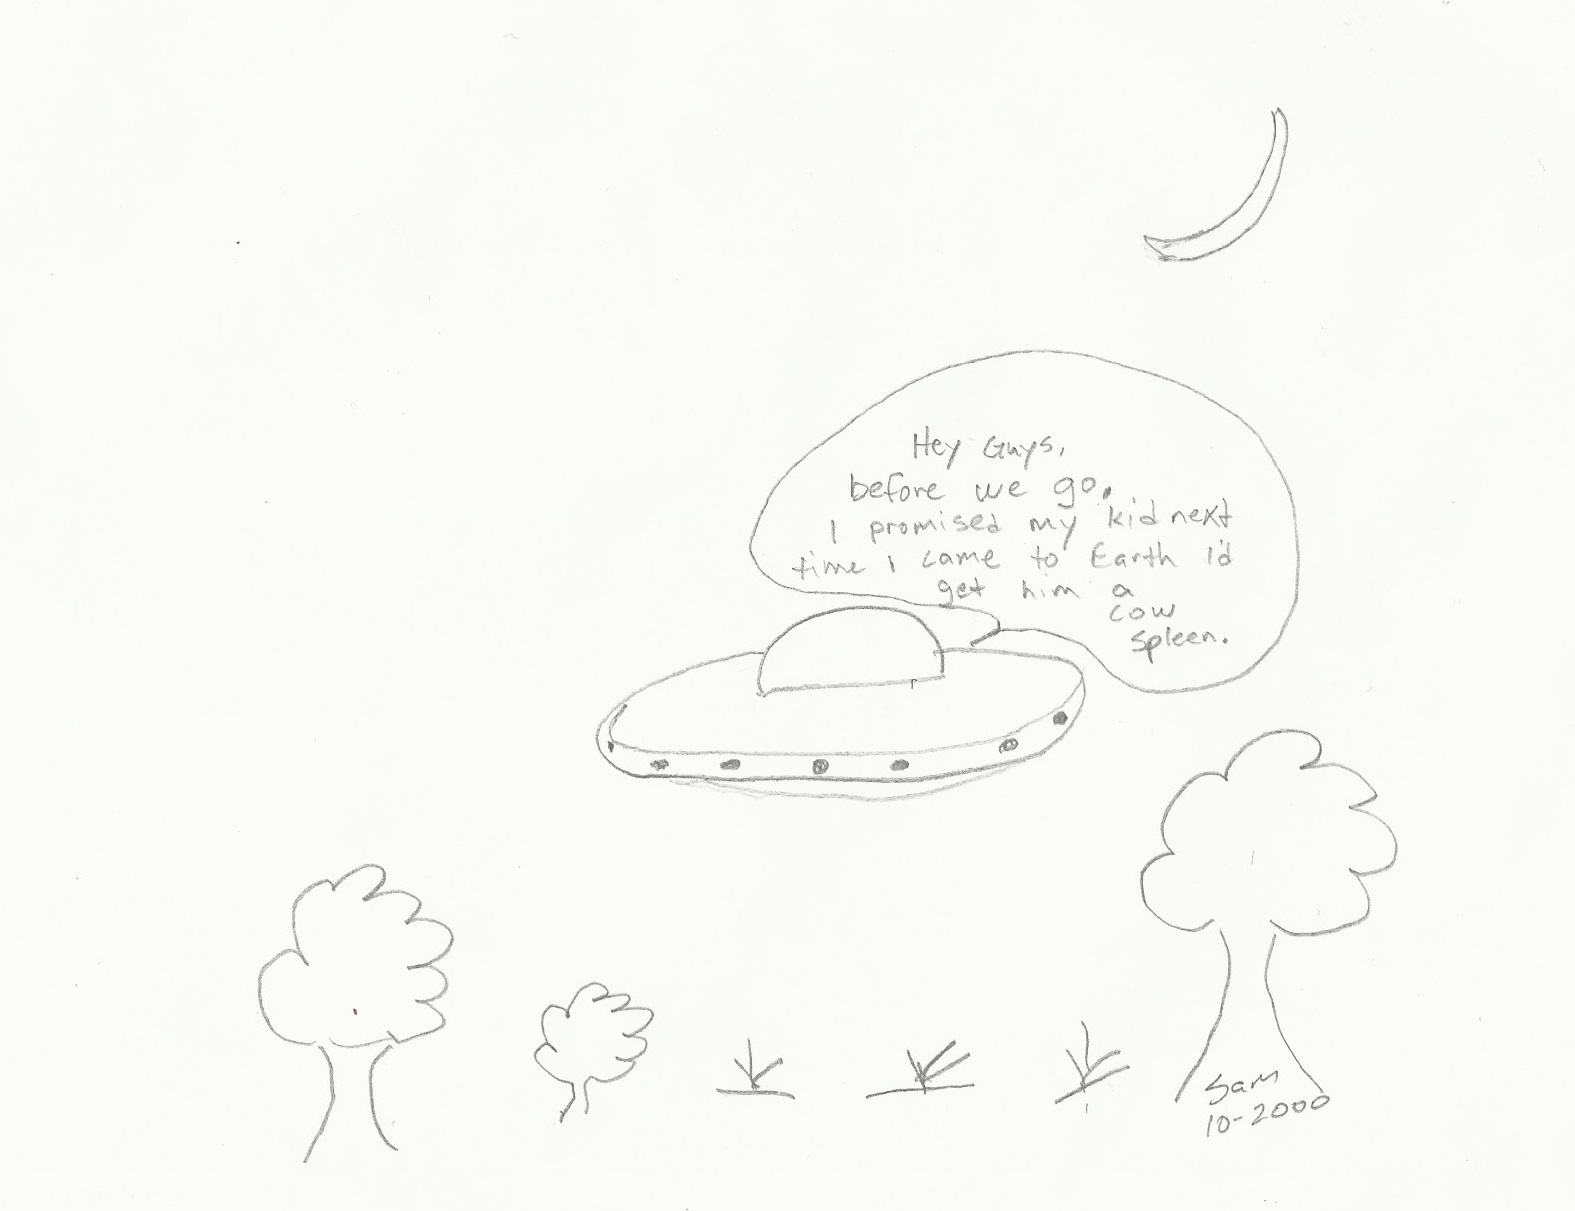 Hey Guys,
before we go.
I promised my kid next
time I came to Earth I'd
get him a
cow
spleen.
Sam
10-2000